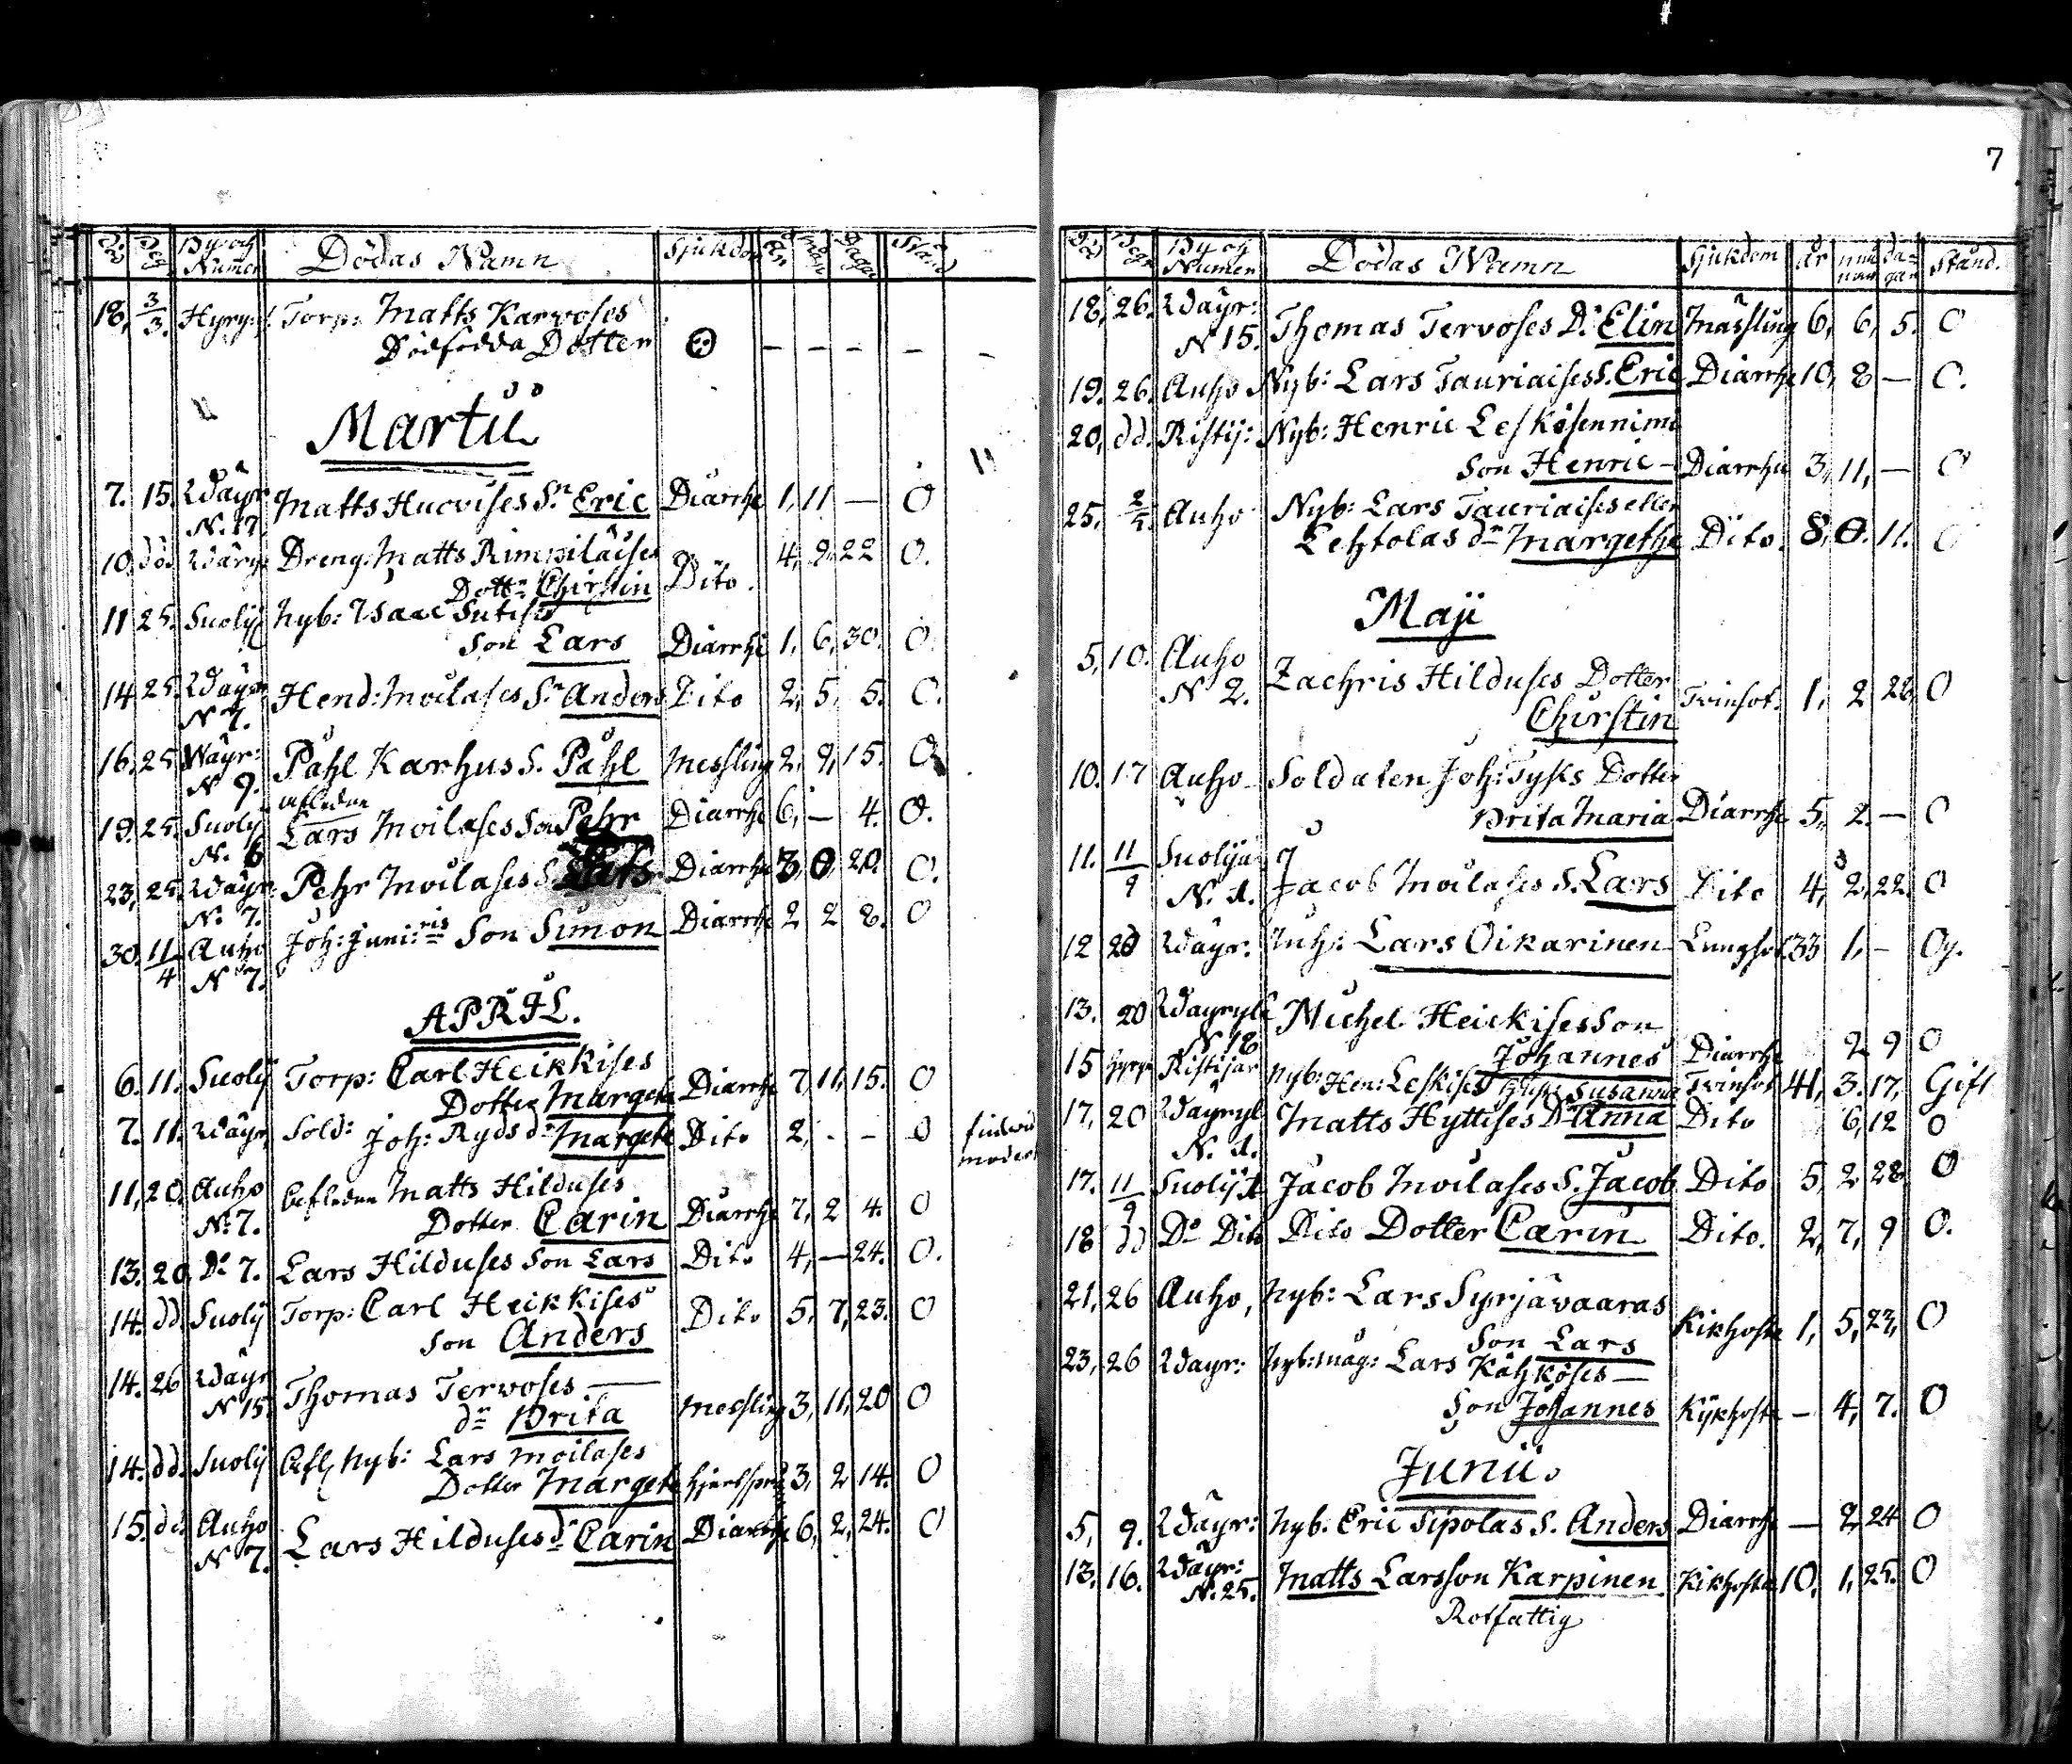 7
By och Numer Dödas Namn Sjukdom
18, 3/3. Hyryns: Torp: Matts Karvoses
Dödfödda Dotter — — — — —
Martii
7. 15. Wäyr N. 17. Matts Hucvises S:n Eric Diarrhe 1, 11 — O
10. dd. Wäyr Dreng. Matts Rimpiläises
Dottr Chirstin Dito. 4, 9, 22 O.
11 25. Suolij Nyb: Isaac Sutises
Son Lars Diarrhe 1, 6, 30. O.
14 25. Wäyr N 7. Hend: Moilases S:n Anders Dito 2, 5, 5. O.
16. 25 Wäyr: N 9. Påhl Karhus S. Påhl Messling 2, 9, 15. O
19. 25. Suolij N. 6 afledne
Lars Moilases Son Pehr Diarrhe 6, — 4. O.
23, 25. Wäyr N. 7. Pehr Moilases S. Lars Diarrhe 3, 0, 20. O.
30. 11/4 Auho N 7. Joh: Juni:ris Son Simon Diarrhe 2 2 8. O
APRIL.
6. 11. Suolij Torp: Carl Heikkises
Dotter Margeta Diarrhe 7, 11, 15. O
7. 11. Wäyr, Sold: Joh: Ryds d:r Margeta Dito 2, . — O
11, 20. Auho N:7. Aflednn Matts Hilduses
Dotter Carin Diarrhe 7, 2 4. O
13. 20. D:o 7. Lars Hilduses Son Lars Dito 4, — 24. O.
14. dd. Suolij Torp: Carl Heikkises
Son Anders Dito 5, 7, 23. O
14. 26 Wäyr N 15. Thomas Tervoses —
d:r Brita Messling 3, 11, 20 O
14. dd. Suolij Afl. Nyb: Lars Moilases
Dotter Margeta 3, 2 14. O
15. dd. Auho N 7. Lars Hilduses d:r Carin Diarrhe 6, 2, 24. O
By og Numer Dödas Namn Sjukdom år må nar da= gar Stånd.
18, 26. Wäyr: N 15. Thomas Tervoses D:r Elin Mässling 6, 6, 5. O
19. 26. Auho Nyb: Lars Tauriaises S. Eric Diarrhe 10, 8 — O.
20, dd. Ristij: Nyb: Henric Leskisen nimi
Son Henric — Diarrhe 3, 11, — O
25, 2/5. Auho Nyb: Lars Tauriaises eller
Lehtolas d:r Margetha Dito. 8, 0. 11. O
Maji
5, 10. Auho N 2. Zachris Hilduses Dotter
Chirstin Tvinsot. 1, 2 28, O
10. 17 Auho Soldaten Joh: Tysks Dotter
Brita Maria Diarrhe 5, 2. — O
11. 11/9 Suolijä N. 1. Jacob Moilases S. Lars Dito 4, 2, 22. O
12 20 Wäyr: Inh: Lars Oikarinen Lungsot 33 1, — Og.
13. 20 Wäyryle N 18 Michel Heickises Son
Johannes Diarrhe 2 9 O
15 Hyryn Ristijär Nyb: Hen: Leskises Susanna Tvinsot 41, 3. 17, Gift
17, 20 Wäyryl N. 1. Matts Hyttises D:r Anna Dito 6, 12 O
17. 11/9 Suolij 1 Jacob Moilases S. Jacob Dito 5, 2 28. O
18 dd D:o Dito Dito Dotter Carin Dito. 2, 7, 9 O.
21, 26 Auho, Nyb: Lars Syrjävaaras
Son Lars Kikhosta 1, 5, 23, O
23, 26 Wäyr: Nyb: måg: Lars Kähköses —
Son Johannes Kykhosta — 4, 7. O
Junii.
5, 9. Wäyr: Nyb: Eric Sipolas S. Anders Diarrhe — 2, 24 O
13, 16. Wäyr: N. 25. Matts Larsson Karpinen Kikhosta 10, 1, 25. O
Rotfattig